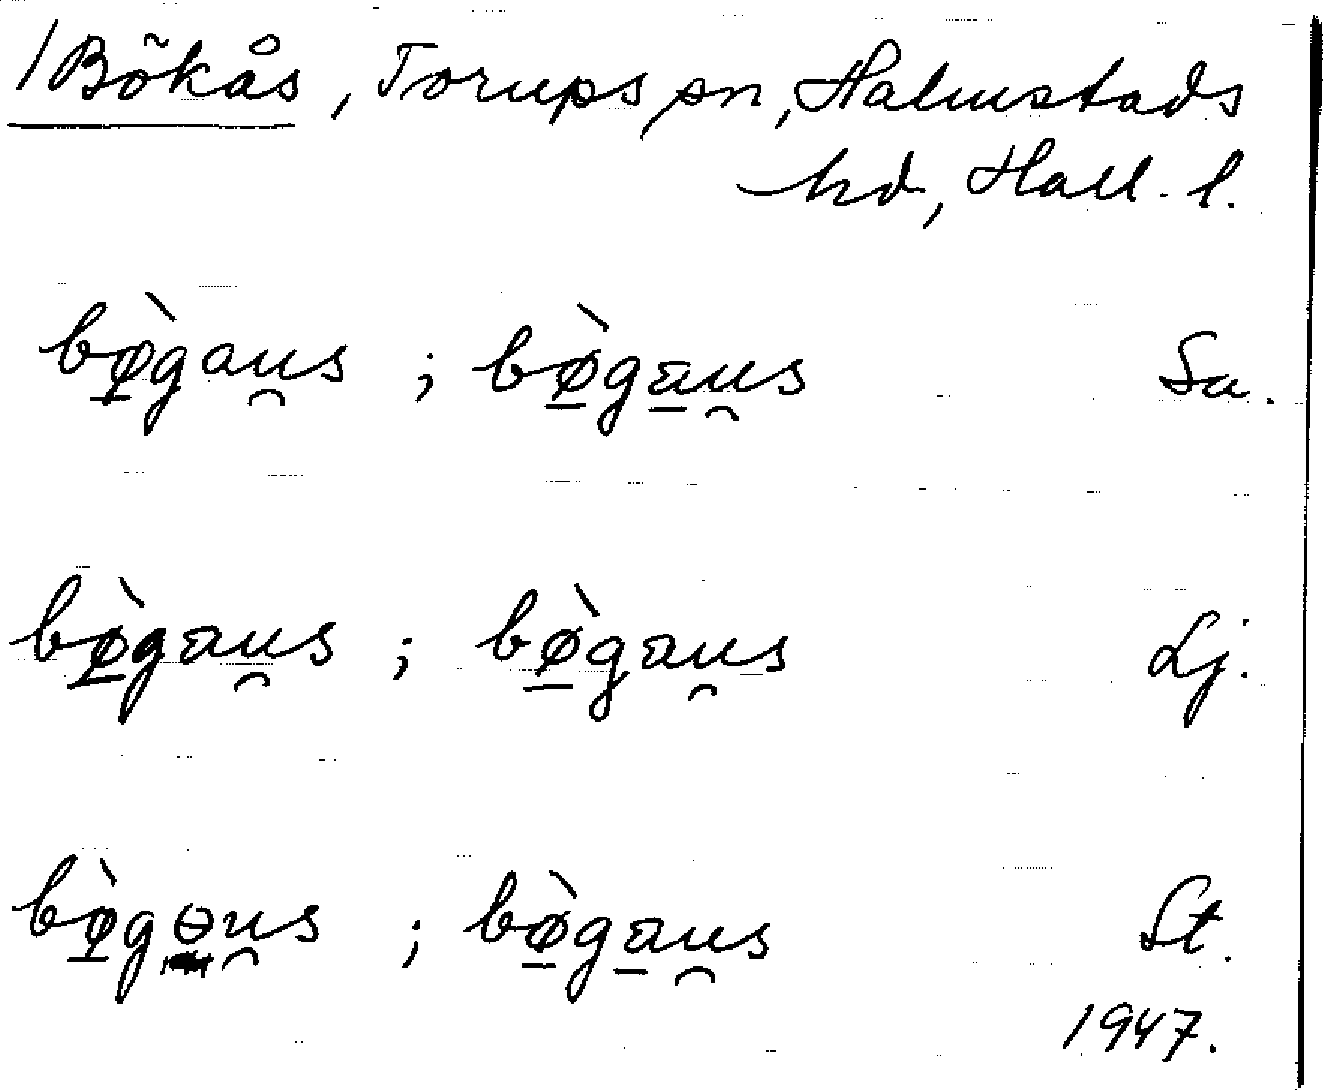 /Bökås, Torups sn, Halmstads
hd, Hall. l.
bø̱̀gau̯s ; bø̱̀ga̱u̯s Sa.
bø̱̀gau̯s ; bø̱̀gau̯s Lj.
bø̱̀gɵu̯s ; bø̱̀ga̱u̯s St.
1947.